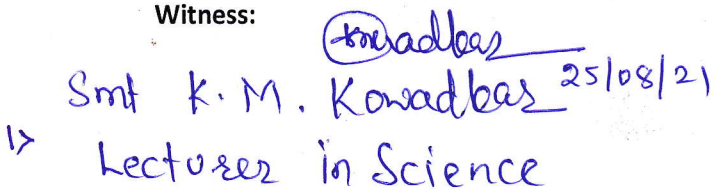 Witness:
Smt K. M. Kowadkar 25/08/21
1>
Lecturer in Science